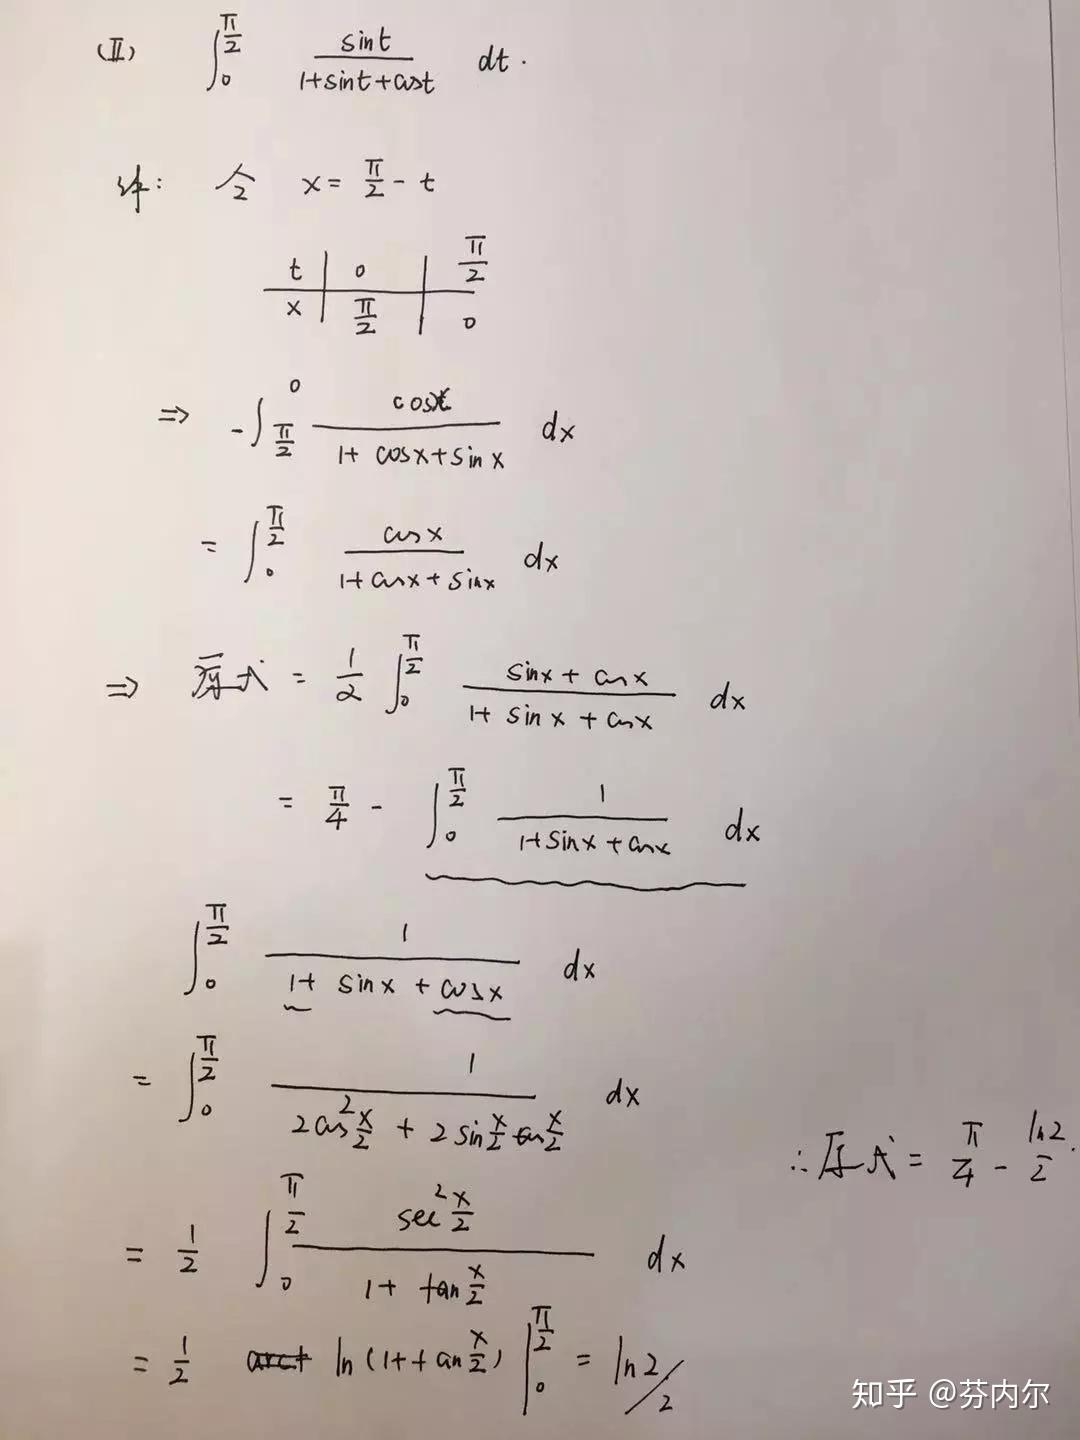 (Ⅱ) ∫₀^{π/2} sint/(1+sint+cost) dt.
解: 令 x = π/2 - t
t | 0 | π/2
x | π/2 | 0
⇒ -∫_{π/2}^{0} cosx/(1+cosx+sinx) dx
= ∫₀^{π/2} cosx/(1+cosx+sinx) dx
⇒ 原式 = 1/2 ∫₀^{π/2} (sinx+cosx)/(1+sinx+cosx) dx
= π/4 - ∫₀^{π/2} 1/(1+sinx+cosx) dx
∫₀^{π/2} 1/(1+sinx+cosx) dx
= ∫₀^{π/2} 1/(2cos²(x/2) + 2sin(x/2)cos(x/2)) dx
∴原式 = π/4 - ln2/2.
= 1/2 ∫₀^{π/2} sec²(x/2)/(1+tan(x/2)) dx
= 1/2 ln(1+tan(x/2)) |₀^{π/2} = ln2/2
知乎 @芬内尔